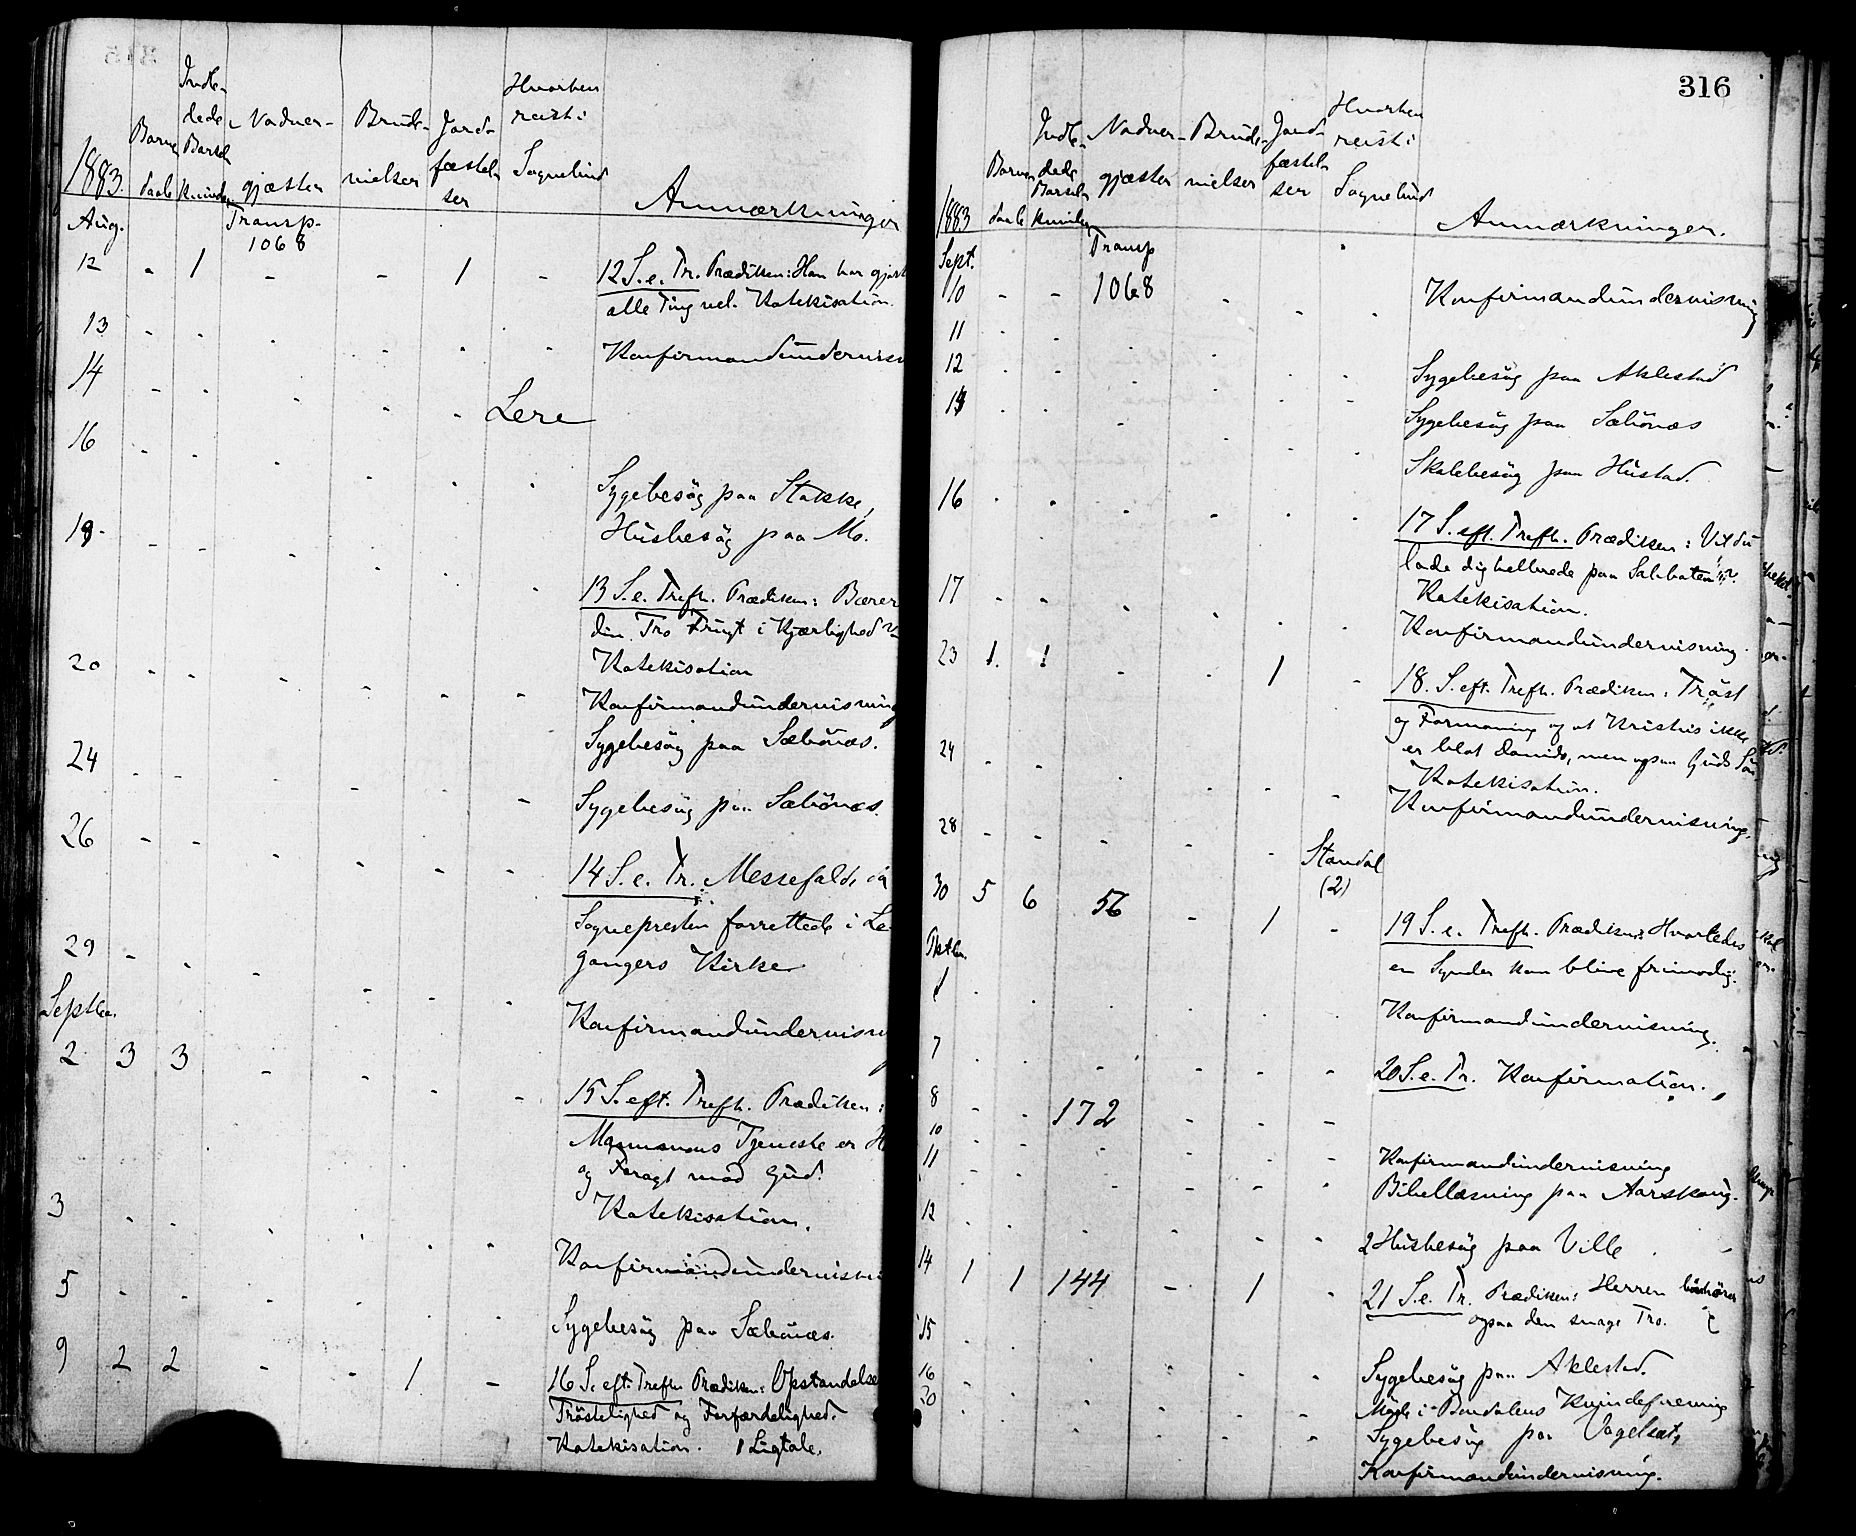 1883.
Barne
daab
Indle-
dede
Barsel
kvinder
Nadver-
gjæster
Brude-
vielser
Jord-
fæstel-
ser
Hvorhen
reist i
Sognebud
Anmærkninger
Aug.
Transp.
1068
12 - 1 - - 1 - 12 S. e. Tr. Prædiken: Han har gjort
alle Ting vel. Katekisation.
13 Konfirmandundervisn
14 Lere
16 Sygebesög paa Stokke,
Husbesög paa Mo.
19 13 S. e. Trefh. Prædiken: Bærer
din Tro Frugt i Kjærlighed
Katekisation
20 Konfirmandundervisning
Sygebesög paa Sæbönæs.
24 Sygebesög paa Sæbönæs.
26 14 S. e. Tr. Messefald, da
Sognepresten forrettede i Le-
gangers Kirke
29 Konfirmandundervisn
Septbr.
2 3 3 - - - - 15 S. eft. Trefh. Prædiken:
Mammons Tjeneste er H
og Foragt mod Gud.
Katekisation.
3 Konfirmandundervisni
5 Sygebesög paa Sæbönæs.
9 2 2 - - 1 - 16 S. eft. Trefh Prædiken: Opstandelse
Tröstelighed og Forfærdelighed.
Katekisation. 1 Ligtale.
316
1883
Barne
daab
Indle-
dede
Barsel-
kvinder
Nadver-
gjæster
Brude-
vielser
Jord-
fæstel-
ser
Hvorhen
reist i
Sognebud
Anmærkninger.
Sept.
Transp
10 - - 1068 Konfirmandundervisning
11
12 Sygebesög paa Aklestad
Sygebesög paa Sæbönæs
Skolebesög paa Hustad.
16 17 S. eft. Trefh. Prædiken: Vil du
lade dig helbrede paa Sabbaten?
Katekisation.
17 Konfirmandundervisning.
23 1. 1 - - 1 - 18. S. eft. Trefh. Prædiken: Tröst
og Formaning og at Kristus ikke
er blot Davids, men ogsaa Guds Sön
Katekisation.
24 Konfirmandundervisning.
28 Standal
(2)
30 5 6 56 - 1 - 19 S. e. Trefh. Prædiken: Hvorledes
en Synder kan blive frimodig.
Oktbr.
1 Konfirmandundervisning.
7 20 S. e. Tr. Konfirmation.
8 - - 172 - - -
10 Konfirmandundervisning
11 Bibellæsning paa Aarskoug.
12 2 Husbesög paa Ville
14 1 1 144 - 1 - 21 S. e. Tr. Prædiken: Herren bönhörer
ogsaa den svage Tro.
15 Sygebesög paa Aklestad.
16 Möde i Bondalens Kvindeforening
20 Sygebesög paa
Konfirmandundervisning.